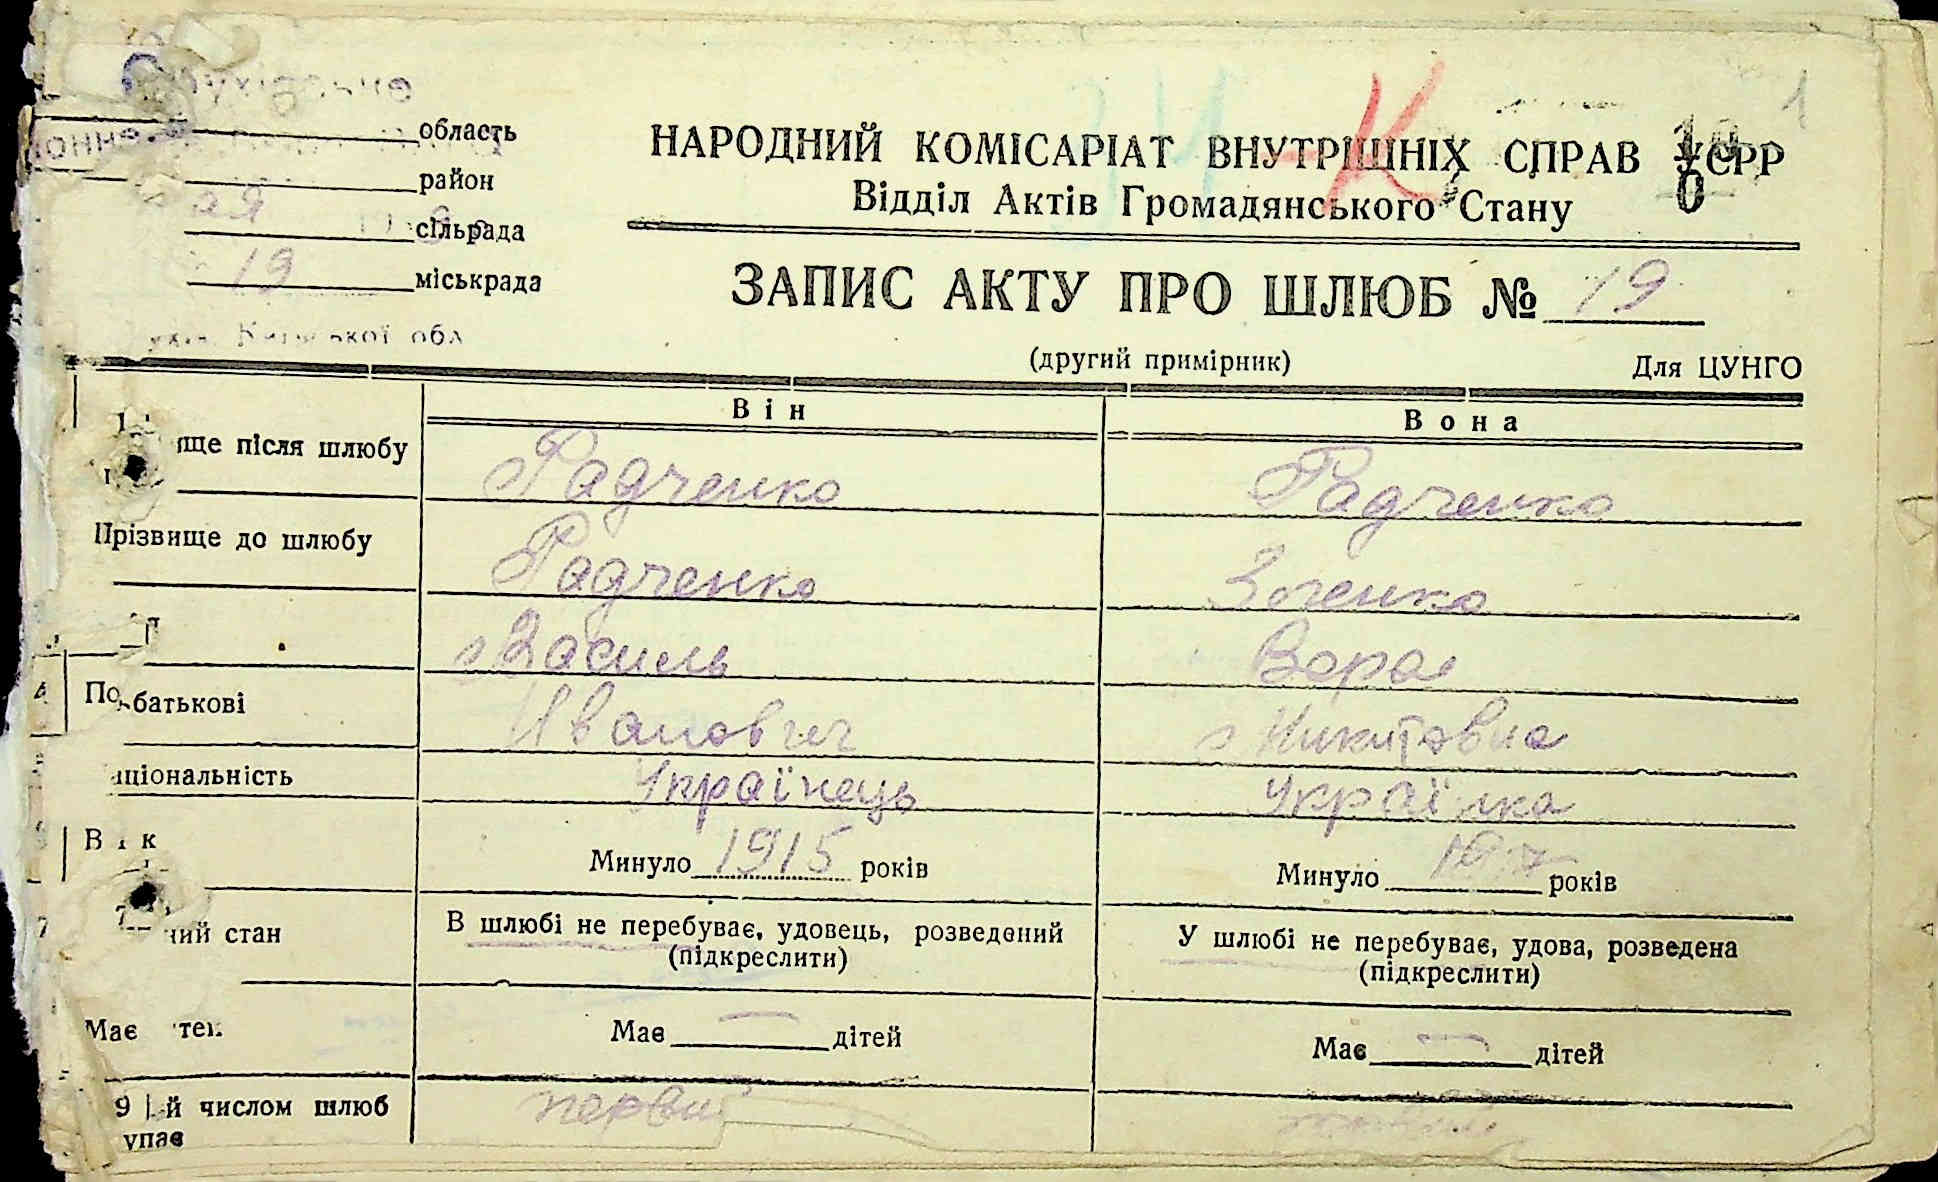 область
район
сільрада
19 міськрада
обл
НАРОДНИЙ КОМІСАРІАТ ВНУТРІШНІХ СПРАВ УСРР
Відділ Актів Громадянського Стану
ЗАПИС АКТУ ПРО ШЛЮБ № 19
(другий примірник) Для ЦУНГО
Він Вона
ище після шлюбу Радченко Радченко
Прізвище до шлюбу Радченко Зоченко
Василь Вера
По батькові Иванович Никитовна
аціональність Українець Українка
Вік Минуло 1915 років Минуло років
ний стан В шлюбі не перебуває, удовець, розведений У шлюбі не перебуває, удова, розведена
(підкреслити) (підкреслити)
Має Має — дітей Має — дітей
9 й числом шлюб первий
упає